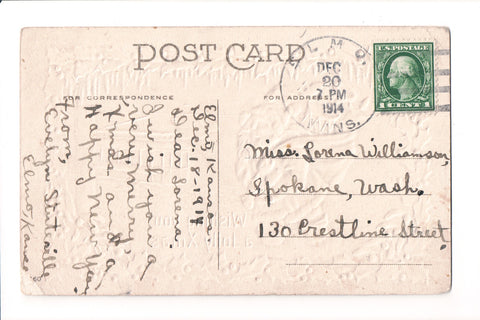 POST CARD
FOR CORRESPONDENCE
FOR ADDRESS
ELMO.
DEC
20
7 PM
1914
KANS.
U.S. POSTAGE
1 CENT 1
Elmo, Kansas
Dec. 18-1914
Dear Lorena:
I wish you a
very merry
Xmas and a
Happy New Year
From,
Evelyn
Elmo, Kans
Miss. Lorena Williamson,
Spokane, Wash.
130 Crestline Street